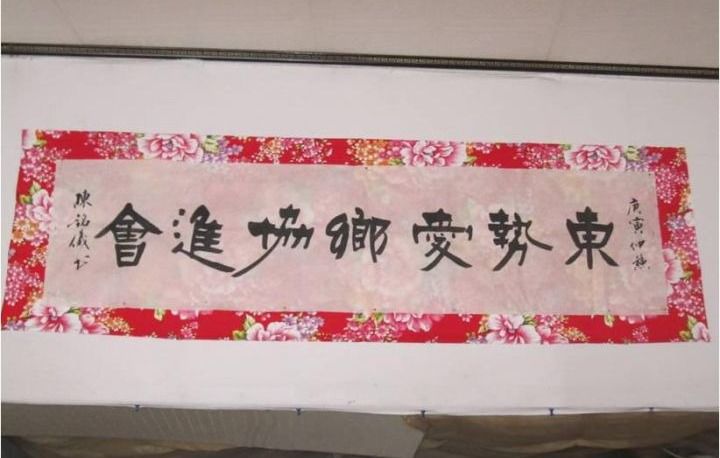 庚寅仲秋
東勢愛鄉協進會
陳銘儀書